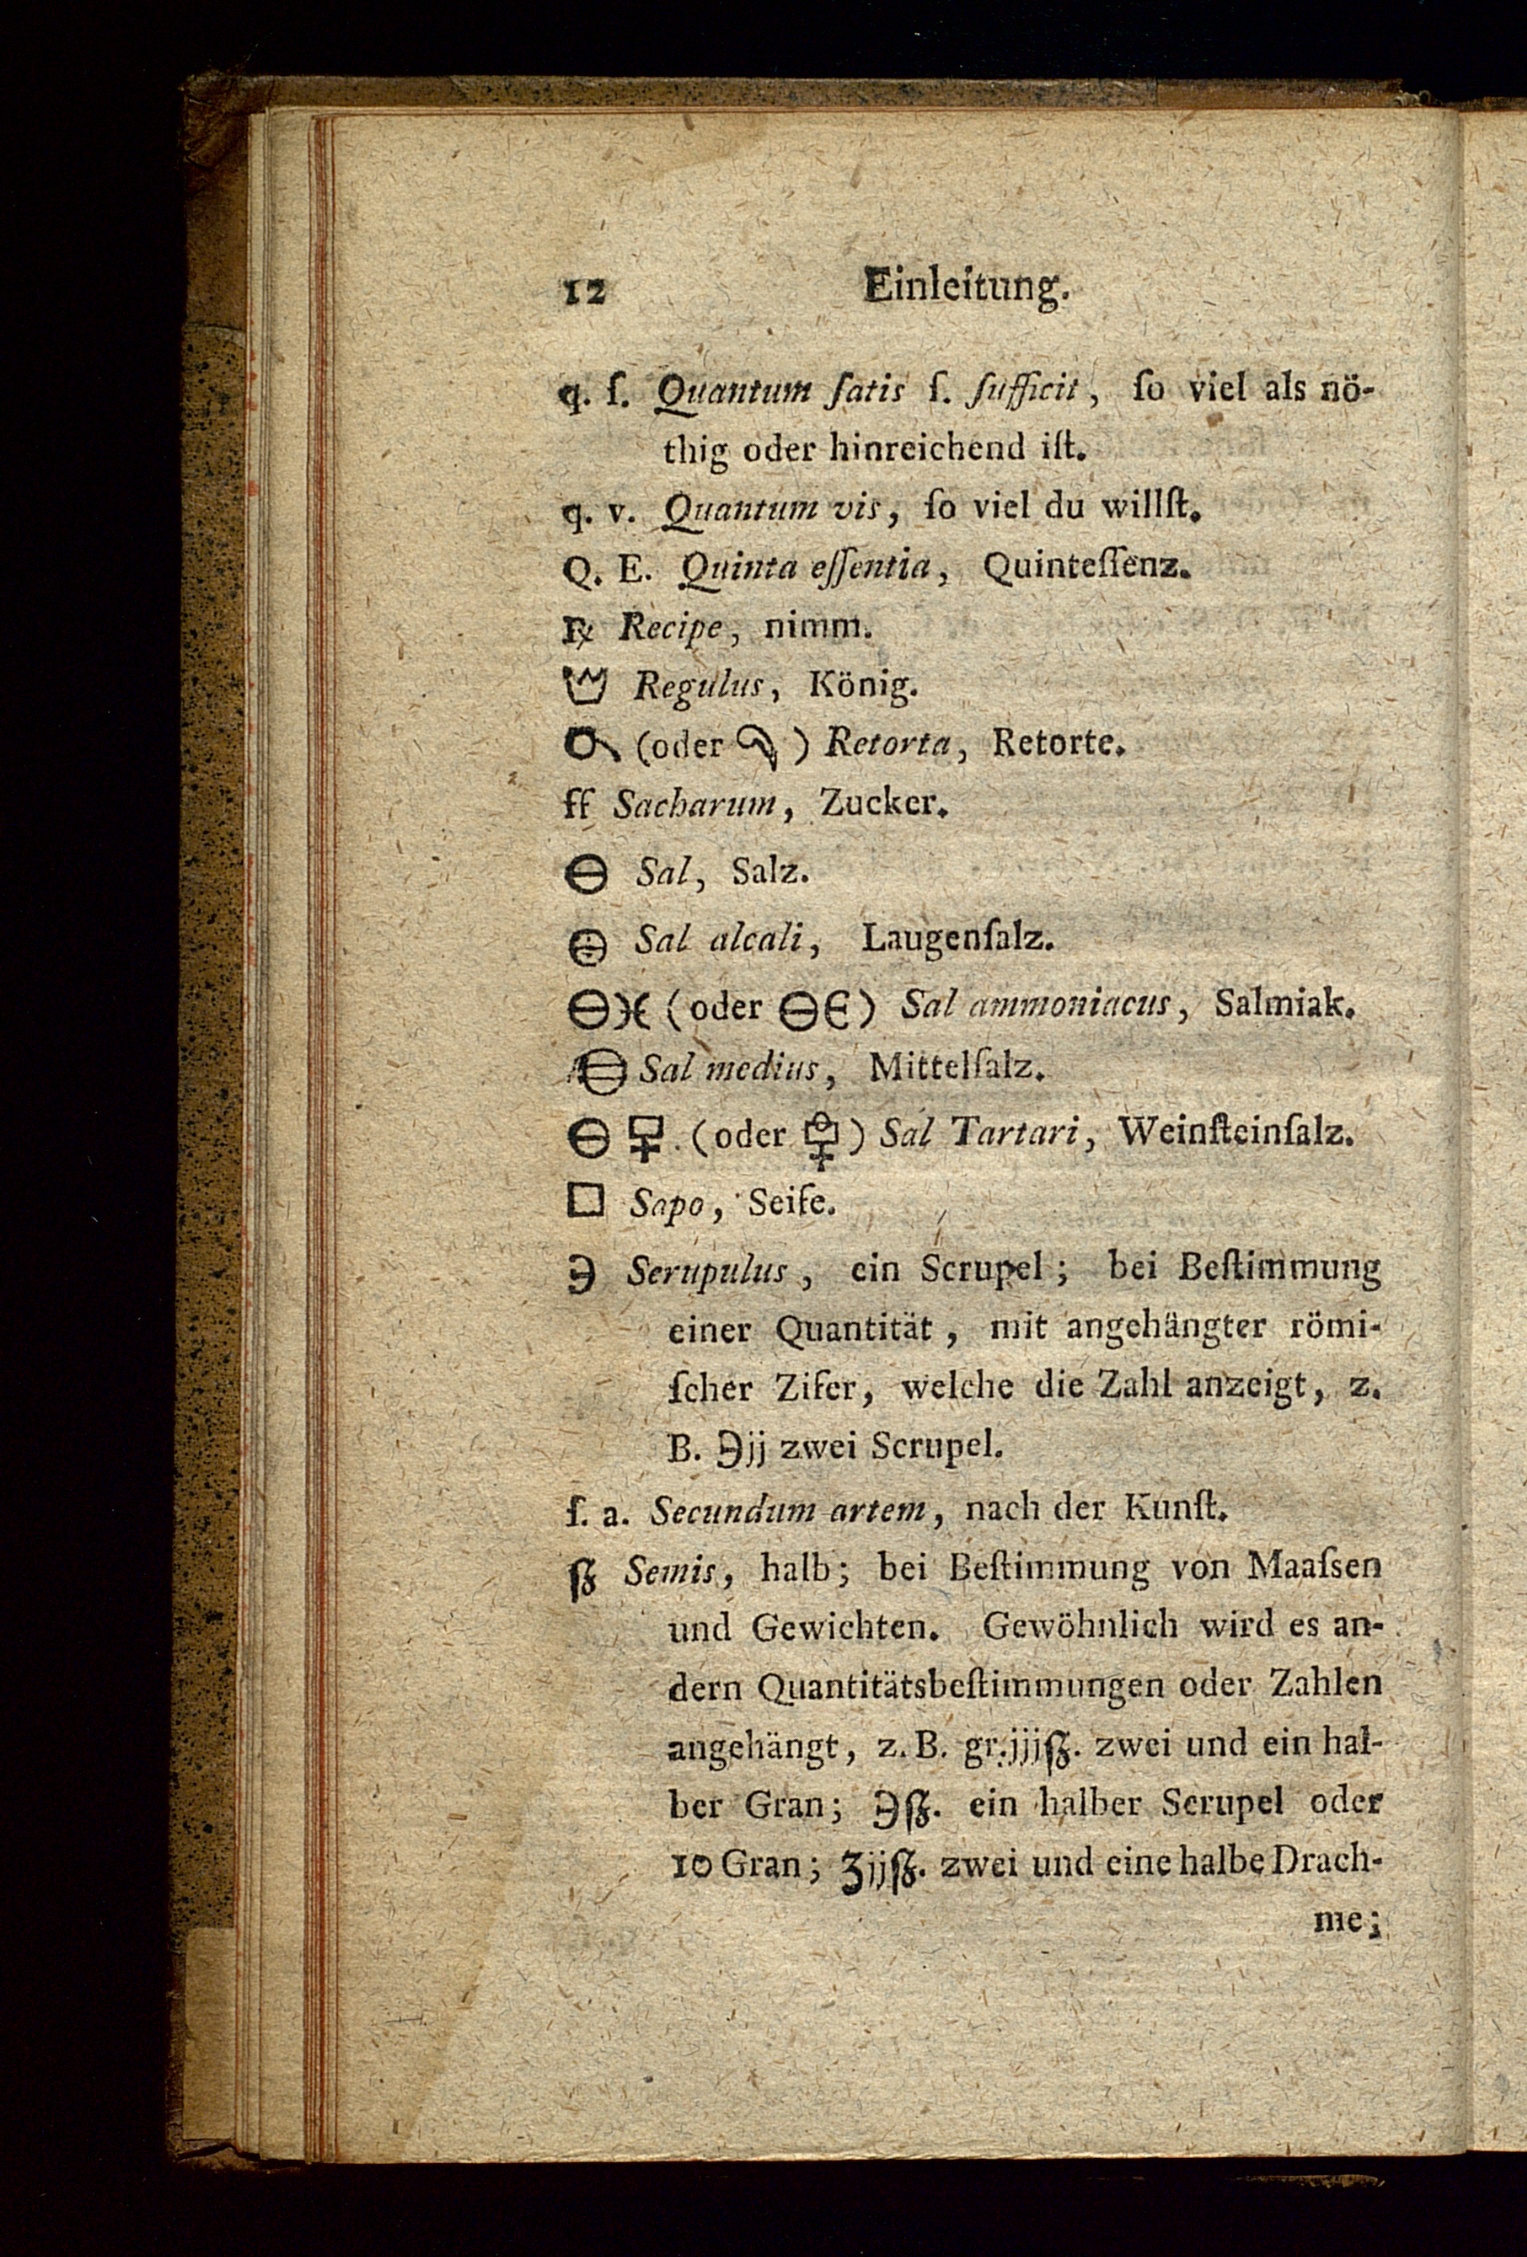 12 Einleitung.
q. ſ. Quantum ſatis ſ. ſufficit, ſo viel als nö-
thig oder hinreichend iſt.
q. v. Quantum vis, ſo viel du willſt.
Q. E. Quinta eſſentia, Quinteſſenz.
℞ Recipe, nimm.
Regulus, König.
(oder ) Retorta, Retorte.
ſſ Sacharum, Zucker.
🜔 Sal, Salz.
Sal alcali, Laugenſalz.
(oder ) Sal ammoniacus, Salmiak.
Sal medius, Mittelſalz.
(oder ) Sal Tartari, Weinſteinſalz.
□ Sapo, Seife.
℈ Scrupulus, ein Scrupel; bei Beſtimmung
einer Quantität, mit angehängter römi-
ſcher Zifer, welche die Zahl anzeigt, z.
B. ℈jj zwei Scrupel.
ſ. a. Secundum artem, nach der Kunſt.
ſʒ Semis, halb; bei Beſtimmung von Maaſsen
und Gewichten. Gewöhnlich wird es an-
dern Quantitätsbeſtimmungen oder Zahlen
angehängt, z. B. gr.jjjſʒ. zwei und ein hal-
ber Gran; ℈ſʒ. ein halber Scrupel oder
10 Gran; ʒjjſʒ. zwei und eine halbe Drach-
me;